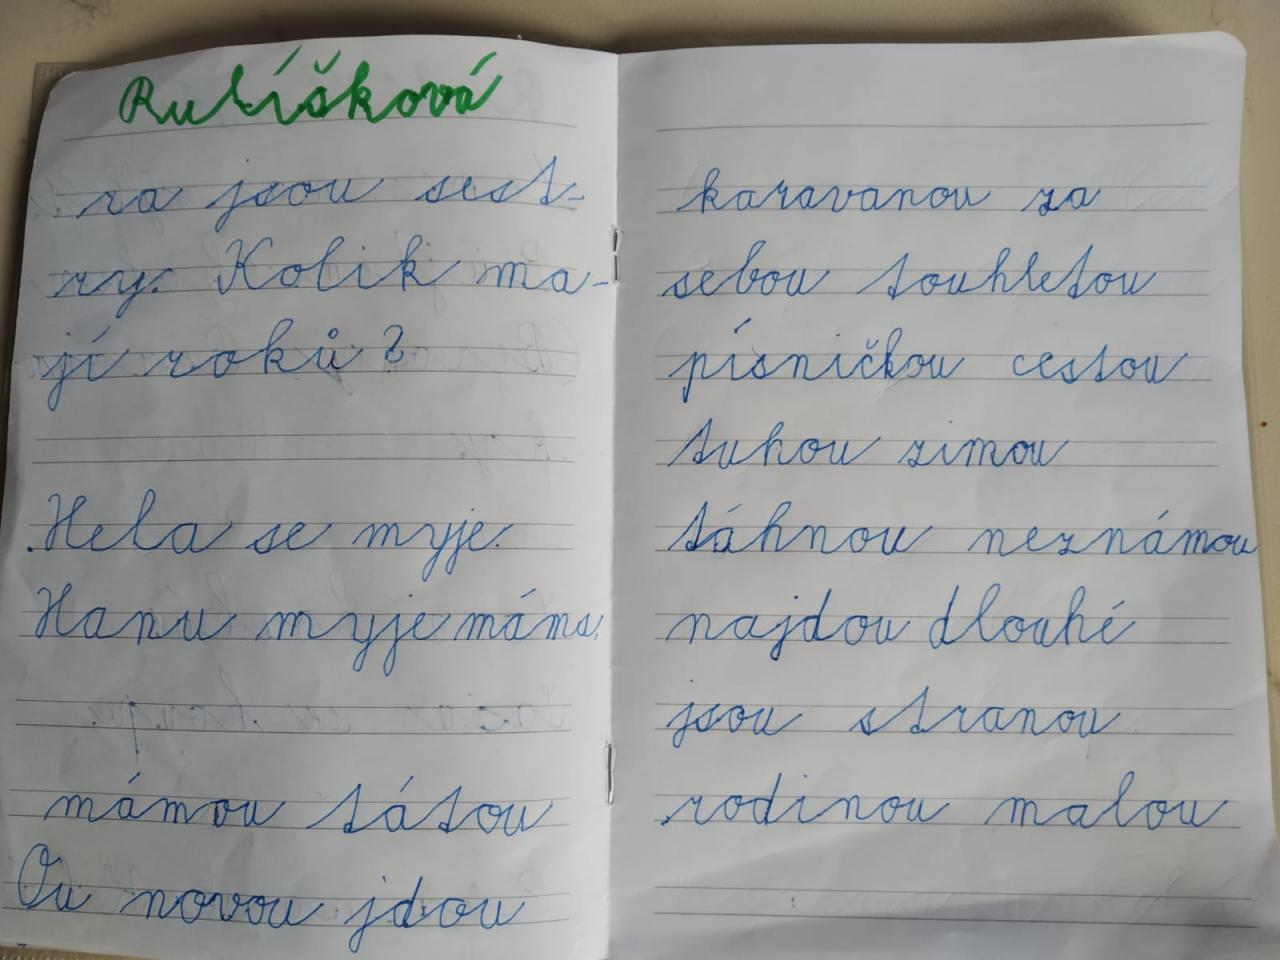 Rulíšková
ra jsou sest-
ry. Kolik ma-
jí roků?
Hela se myje.
Hanu myje máma.
mámou tátou
Ou novou jdou
karavanou za
sebou touhletou
písničkou cestou
tuhou zimou
táhnou neznámou
najdou dlouhé
jsou stranou
rodinou malou